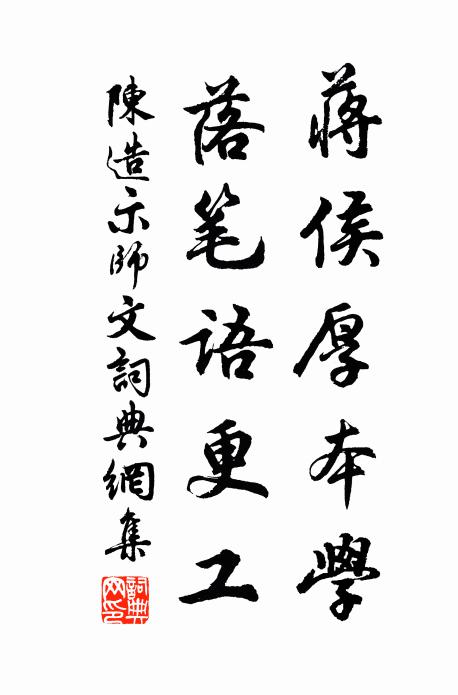 蒋侯厚本學
落笔語更工
陳造示師文詞典網集
詞典網印